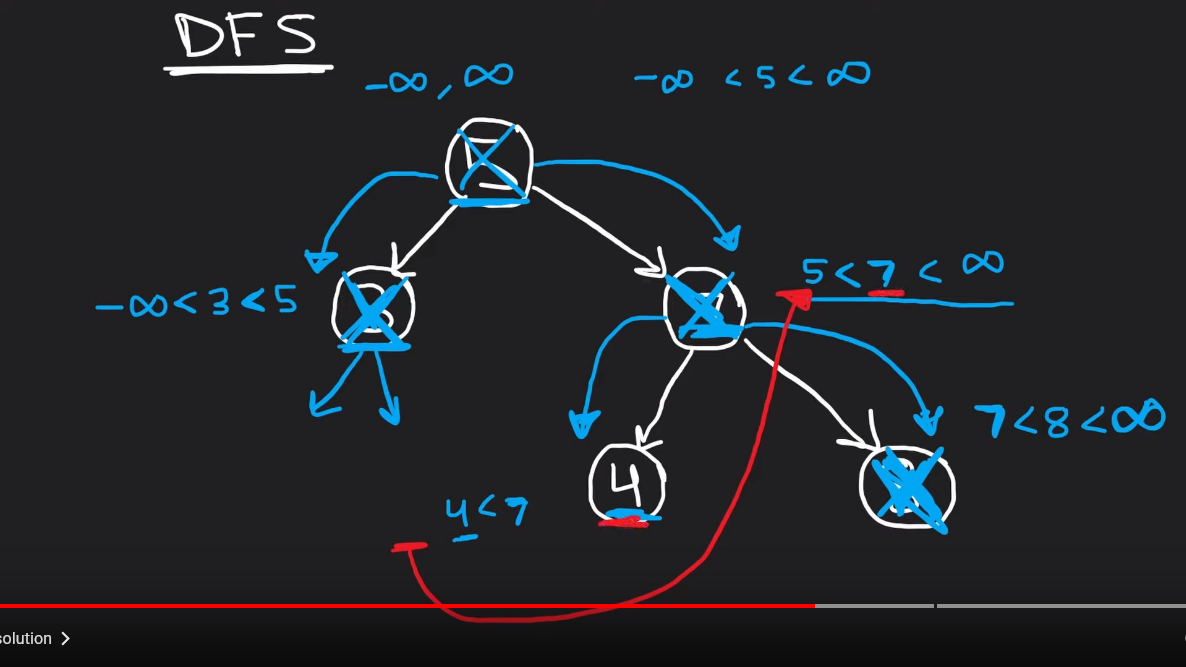 DFS
-∞, ∞
-∞ < 5 < ∞
5
-∞ < 3 < 5
3
7
5 < 7 < ∞
7 < 8 < ∞
4
8
4 < 7
solution